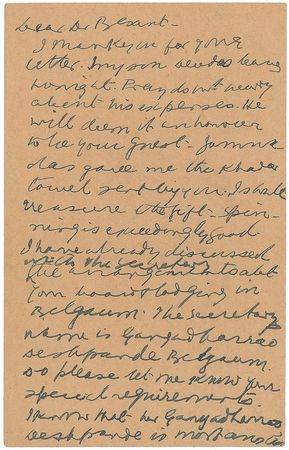 Dear Dr Besant -
I thank you for your
letter. Impson Devdas
tonight. Pray do not worry
about his expenses. He
will deem it an honour
to be your guest - Jamna
das gave me the Khadar
towel sent by you. I shall
treasure the gift - Spin-
ning is exceedingly good
I have already discussed
with the secretary
the arrangements abt
your board & lodging in
Belgaum. The Secretary
name is Gangadharrao
Deshpande Belgaum.
Do please let me know your
special requirements
I know that Gangadharrao
Deshpande is most